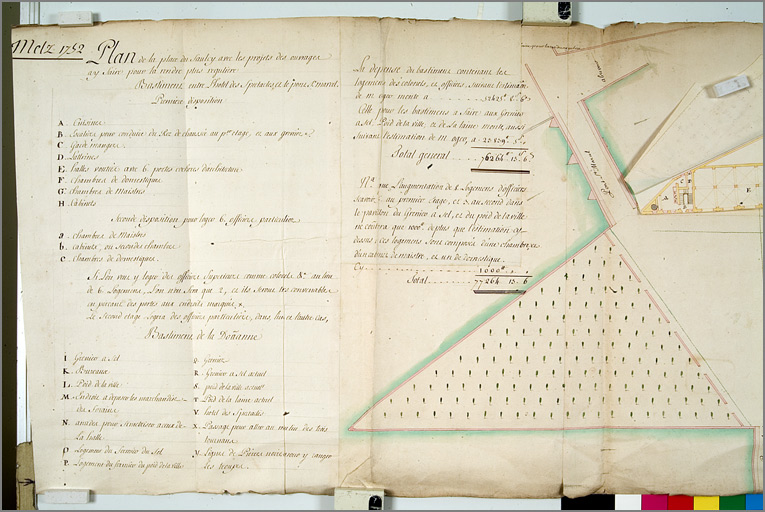 Metz 1752
Plan de la place du Saulcy avec les projets des ouvrages
a y faire pour la rendre plus reguliere
Bastiment entre l'hotel des Spectacles et le pont St. marcel
Premiere disposition
A. Cuisine
B. Escalier pour conduire du Rez de chaussée au pr. etage, et aux greniers
C. Garde manger
D. Lattrines
E. Salle voutée avec 6 portes cochers
F. chambres de domestiques
G. chambres de Maistres
H. Cabinets
Seconde disposition pour loger 6 officiers particuliers
a. chambres de Maistres
b. cabinets, ou secondes chambres
c. chambres de domestiques
Si l'on veut y loger des officiers Superieurs comme colonels &c. au lieu
de 6 Logemens, l'on n'en fera que 2, et ils seront tres convenables
en perçant des portes aux endroits marqués x.
Le Second etage logera des officiers particuliers, dans l'un et l'autre cas.
Bastiment de la Doüanne
I. Grenier a Sel
K. Bureaux
L. Poid de la ville
M. Endroit a deposer les marchandises
des Forains
N. pour
La halle
O. Logement du fermier du Sel
P. Logement du fermier du poid de la ville
Q. Greniers
R. Grenier a Sel actuel
S. poid de la ville actuel
T. Poid de la laine actuel
V. hotel des Spectacles
X. Passage pour aller au moulin des toits
tournans
Y. Lignes de Pierres pour y ranger
les troupes
La depense du bastiment contenant les
logemens des colonels, et officiers, suivant l'estimation
de mr. oger monte a
Celle pour les bastimens a faire aux Greniers
a Sel, Poid de la ville, et de la laine monte aussi
suivant l'estimation de mr. oger, a 23839
Total general 76264. 13. 6
Na. que l'augmentation de 8 logemens d'officiers
scavoir au premier etage, et au second dans
le pavillon du Grenier a sel, et du poid de la ville
ne coutera que 1000 de plus que l'estimation cy
dessus, ces logemens sont composés d'une chambre
d'un cabinet de maistre, et un de domestique.
Cy 1000
Total 77264. 13. 6
Pont St. Marcel
E